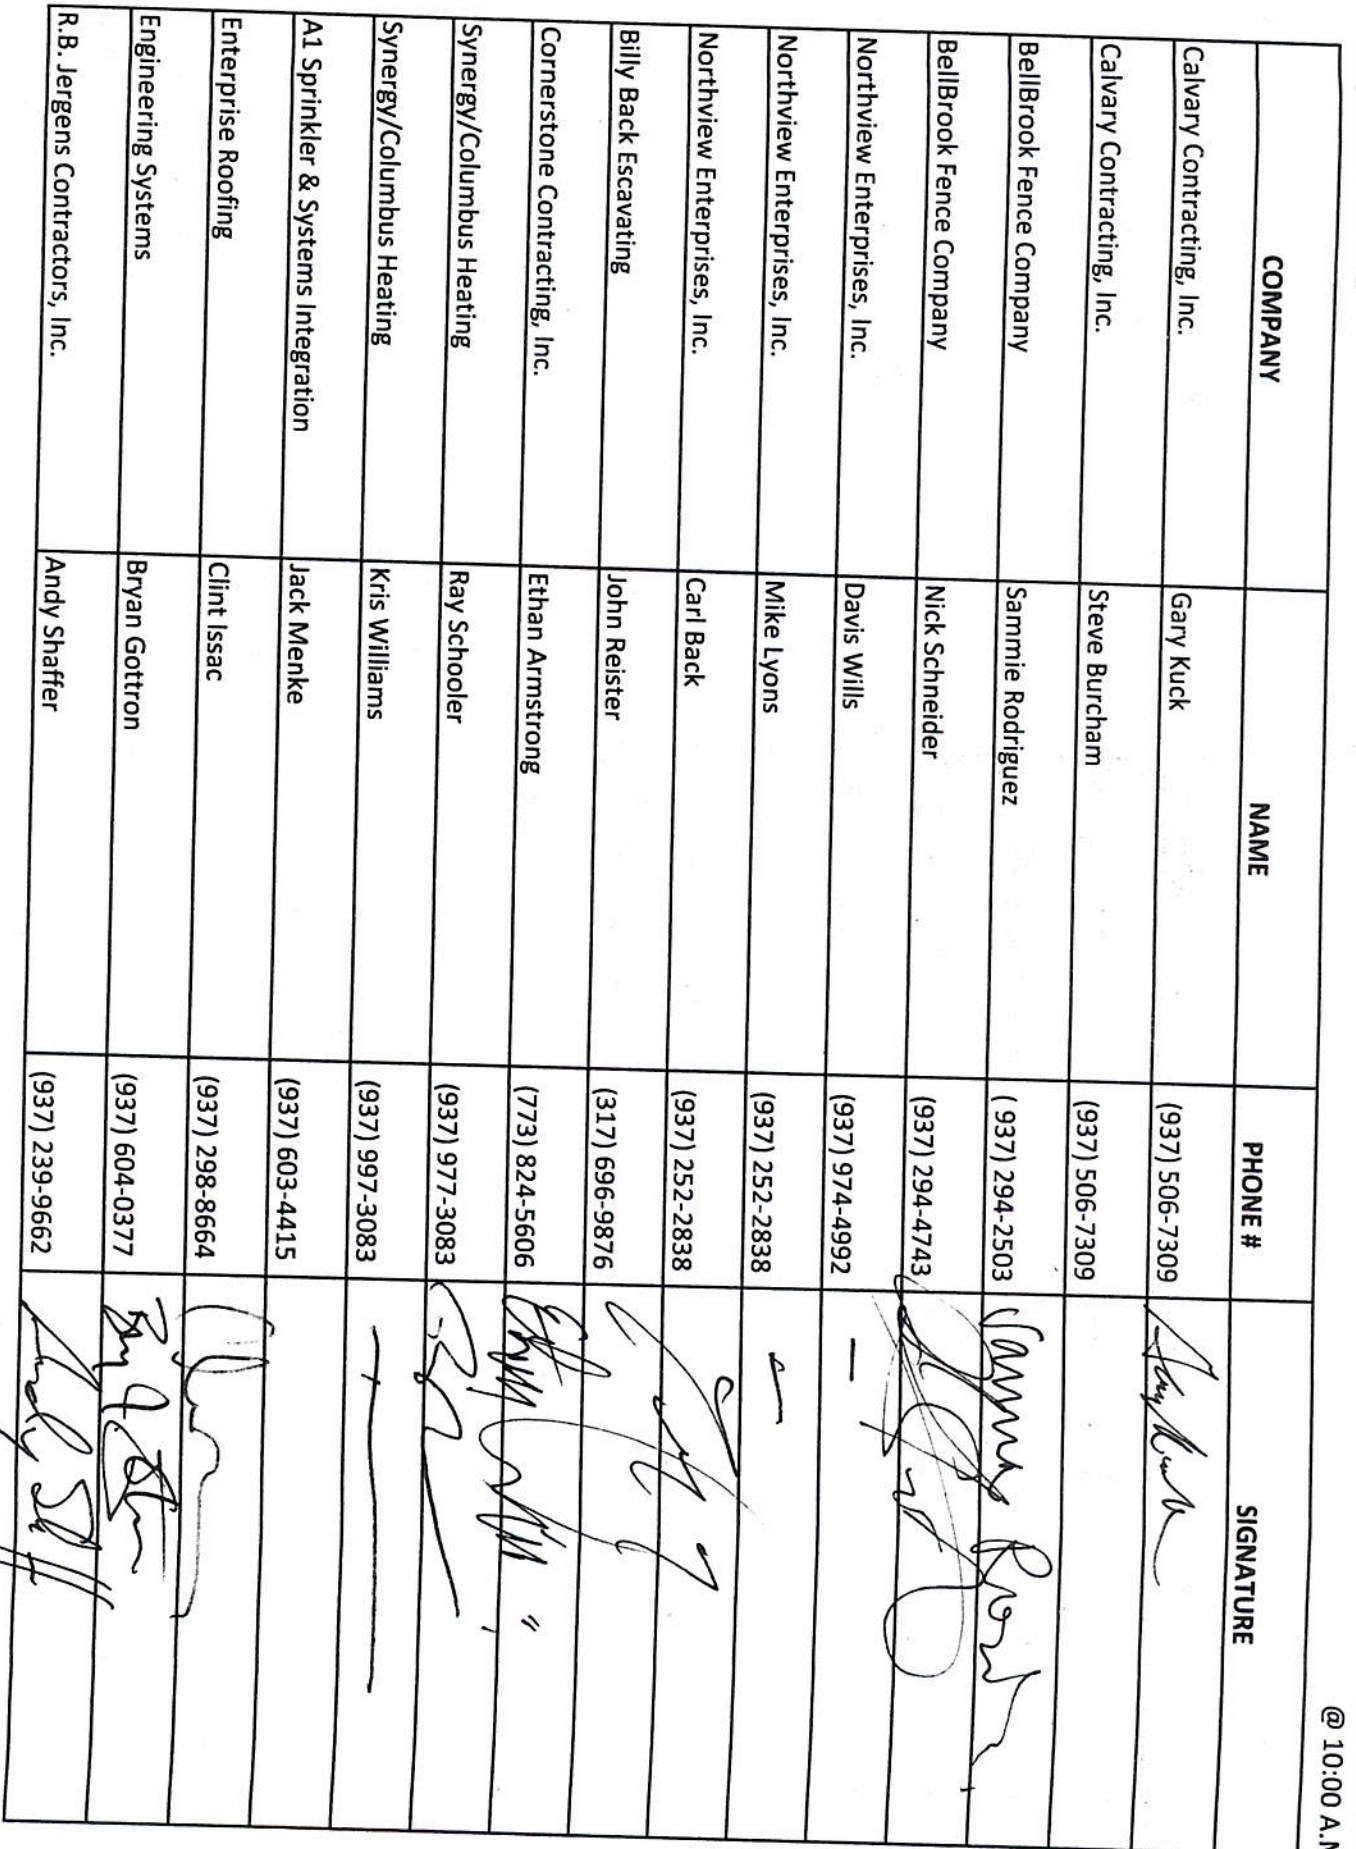 @ 10:00 A.M
COMPANY NAME PHONE # SIGNATURE
Calvary Contracting, Inc. Gary Kuck (937) 506-7309
Calvary Contracting, Inc. Steve Burcham (937) 506-7309
BellBrook Fence Company Sammie Rodriguez ( 937) 294-2503
BellBrook Fence Company Nick Schneider (937) 294-4743
Northview Enterprises, Inc. Davis Wills (937) 974-4992 —
Northview Enterprises, Inc. Mike Lyons (937) 252-2838
Northview Enterprises, Inc. Carl Back (937) 252-2838
Billy Back Escavating John Reister (317) 696-9876
Cornerstone Contracting, Inc. Ethan Armstrong (773) 824-5606
Synergy/Columbus Heating Ray Schooler (937) 977-3083
Synergy/Columbus Heating Kris Williams (937) 997-3083
A1 Sprinkler & Systems Integration Jack Menke (937) 603-4415
Enterprise Roofing Clint Issac (937) 298-8664
Engineering Systems Bryan Gottron (937) 604-0377
R.B. Jergens Contractors, Inc. Andy Shaffer (937) 239-9662